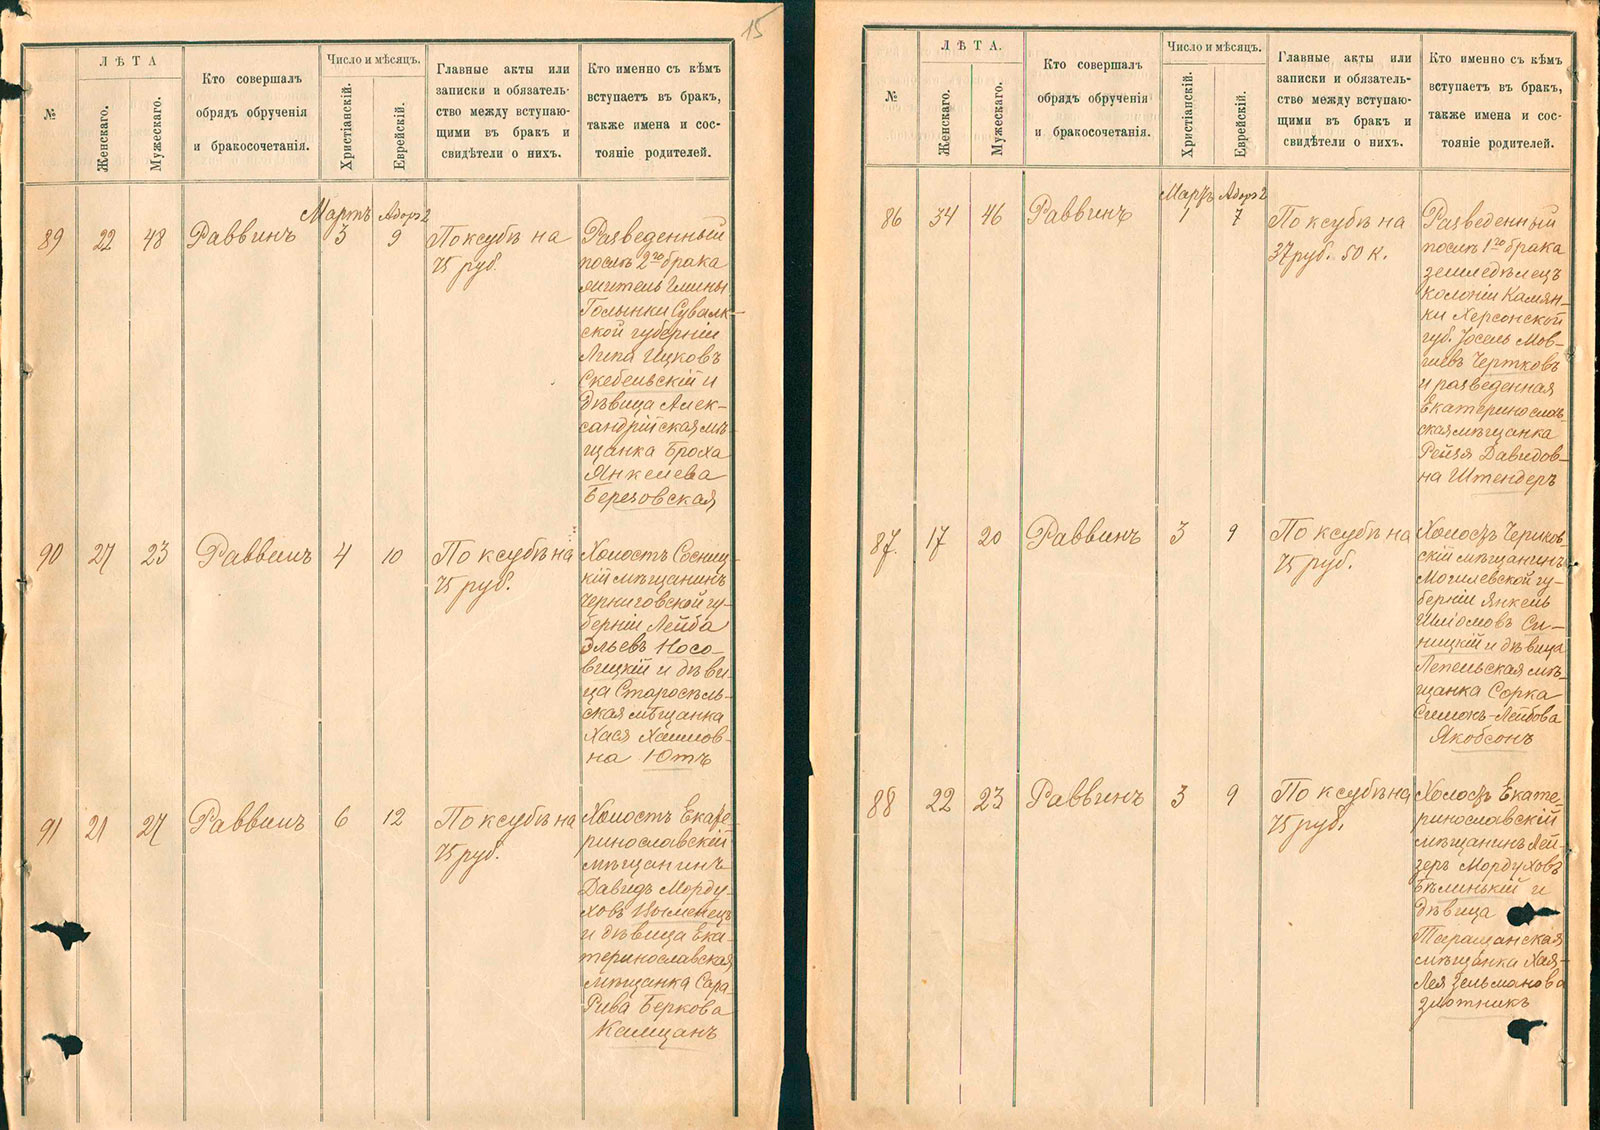 15
№
ЛѢТА
Женскаго.
Мужескаго.
Кто совершалъ
обрядъ обрученія
и бракосочетанія.
Число и мѣсяцъ.
Христіанскій.
Еврейскій.
Главные акты или
записки и обязатель-
ство между вступаю-
щими въ бракъ и
свидѣтели о нихъ.
Кто именно съ кѣмъ
вступаетъ въ бракъ,
также имена и сос-
тояніе родителей.
89 22 48 Раввинъ
Мартъ Адоръ 2
3 9
По ксубѣ на
75 руб.
Разведенный
послѣ 2го брака
житель гмины
Голынки Сувалк-
ской губерніи
Липа Ицковъ
Скебельскій и
дѣвица Алек-
сандрійская мѣ-
щанка Броха
Янкелева
Березовская
90 27 23 Раввинъ 4 10
По ксубѣ на
75 руб.
Холостъ Сосниц-
кій мѣщанинъ
Черниговской гу-
берніи Лейба
Эльевъ Носо-
вицкій и дѣви-
ца Старосѣль-
ская мѣщанка
Хася Хаимов-
на Ютъ
91 21 27 Раввинъ 6 12
По ксубѣ на
75 руб.
Холостъ Екате-
ринославскій
мѣщанинъ
Давидъ Морду-
ховъ
и дѣвица Ека-
теринославская
мѣщанка Сара
Рива Беркова
Калцанъ
№
ЛѢТА.
Женскаго.
Мужескаго.
Кто совершалъ
обрядъ обрученія
и бракосочетанія.
Число и мѣсяцъ.
Христіанскій.
Еврейскій.
Главные акты или
записки и обязатель-
ство между вступаю-
щими въ бракъ и
свидѣтели о нихъ.
Кто именно съ кѣмъ
вступаетъ въ бракъ,
также имена и сос-
тояніе родителей.
86 34 46 Раввинъ
Мартъ Адоръ 2
1 7
По ксубѣ на
37 руб. 50 к.
Разведенный
послѣ 1го брака
земледѣлецъ
колоніи Камян-
ки Херсонской
губ. Іосель Мов-
шевъ Чертковъ
и разведенная
Екатеринослав-
ская мѣщанка
Рейзя Давидов-
на Штендеръ
87. 17 20 Раввинъ 3 9
По ксубѣ на
75 руб.
Холостъ Чериков-
скій мѣщанинъ
Могилевской гу-
берніи Янкель
Шліомовъ Си-
ницкій и дѣвица
Лепельская мѣ-
щанка Сорка
Симонъ-Лейбова
Якобсонъ
88 22 23 Раввинъ 3 9
По ксубѣ на
75 руб.
Холостъ Екате-
ринославскій
мѣщанинъ Лей-
зеръ Мордуховъ
Бѣлинькій и
дѣвица
Таращанская
мѣщанка Хая-
Лея Зельманова
Злотникъ